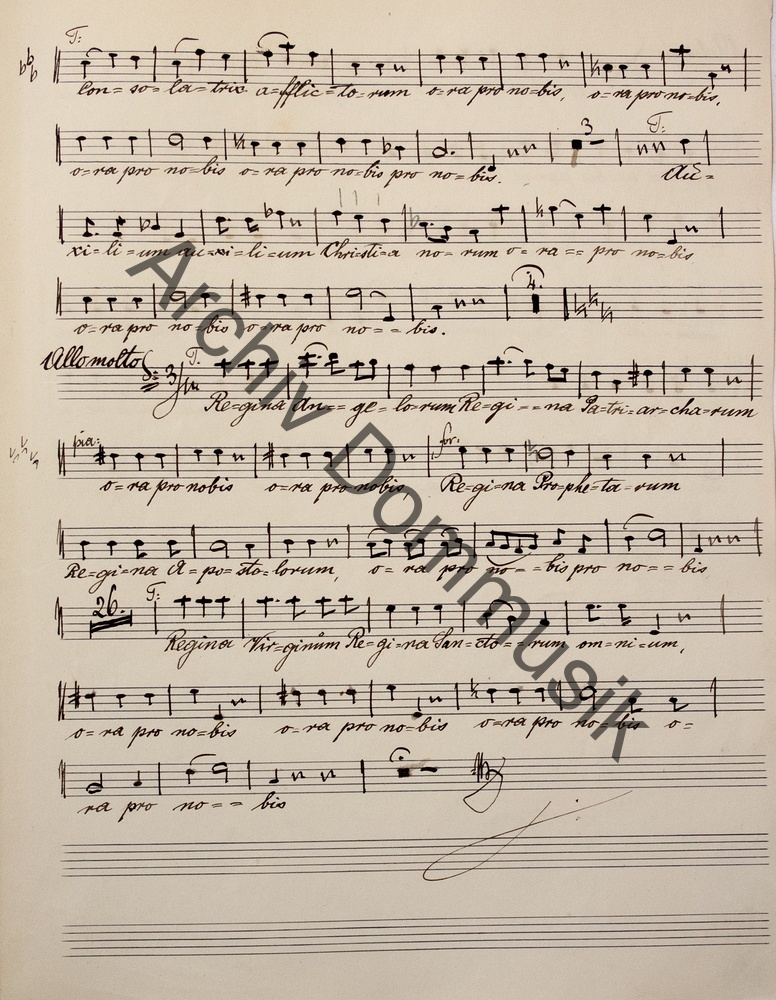 T:
Con= so= la= trix a= fflic= to= rum o= ra pro no= bis, o= ra pro no= bis,
3 T:
o= ra pro no= bis o= ra pro no= bis pro no= bis. Au=
xi= li= um au= xi= li= um Christi= a no= rum o= ra == pro no= bis
4.
o= ra pro no= bis o= ra pro no= = = bis.
Allo molto 3/4 T.
Re= gina An== ge= lo= rum Re= gi= = na Pa= tri= ar= cha= rum
pia: for.
o= ra pro nobis o= ra pro nobis Re= gi= na Pro= phe= ta= rum
Re= gi= na A= po= sto= lorum, o= ra pro no= = bis pro no= = bis
26. T:
Regina Vir= ginum Re= gi= na San= cto= = rum om= ni= um,
o= ra pro no= bis o= ra pro no= bis o= ra pro no= bis o=
ra pro no= = bis
Archiv Dommusik